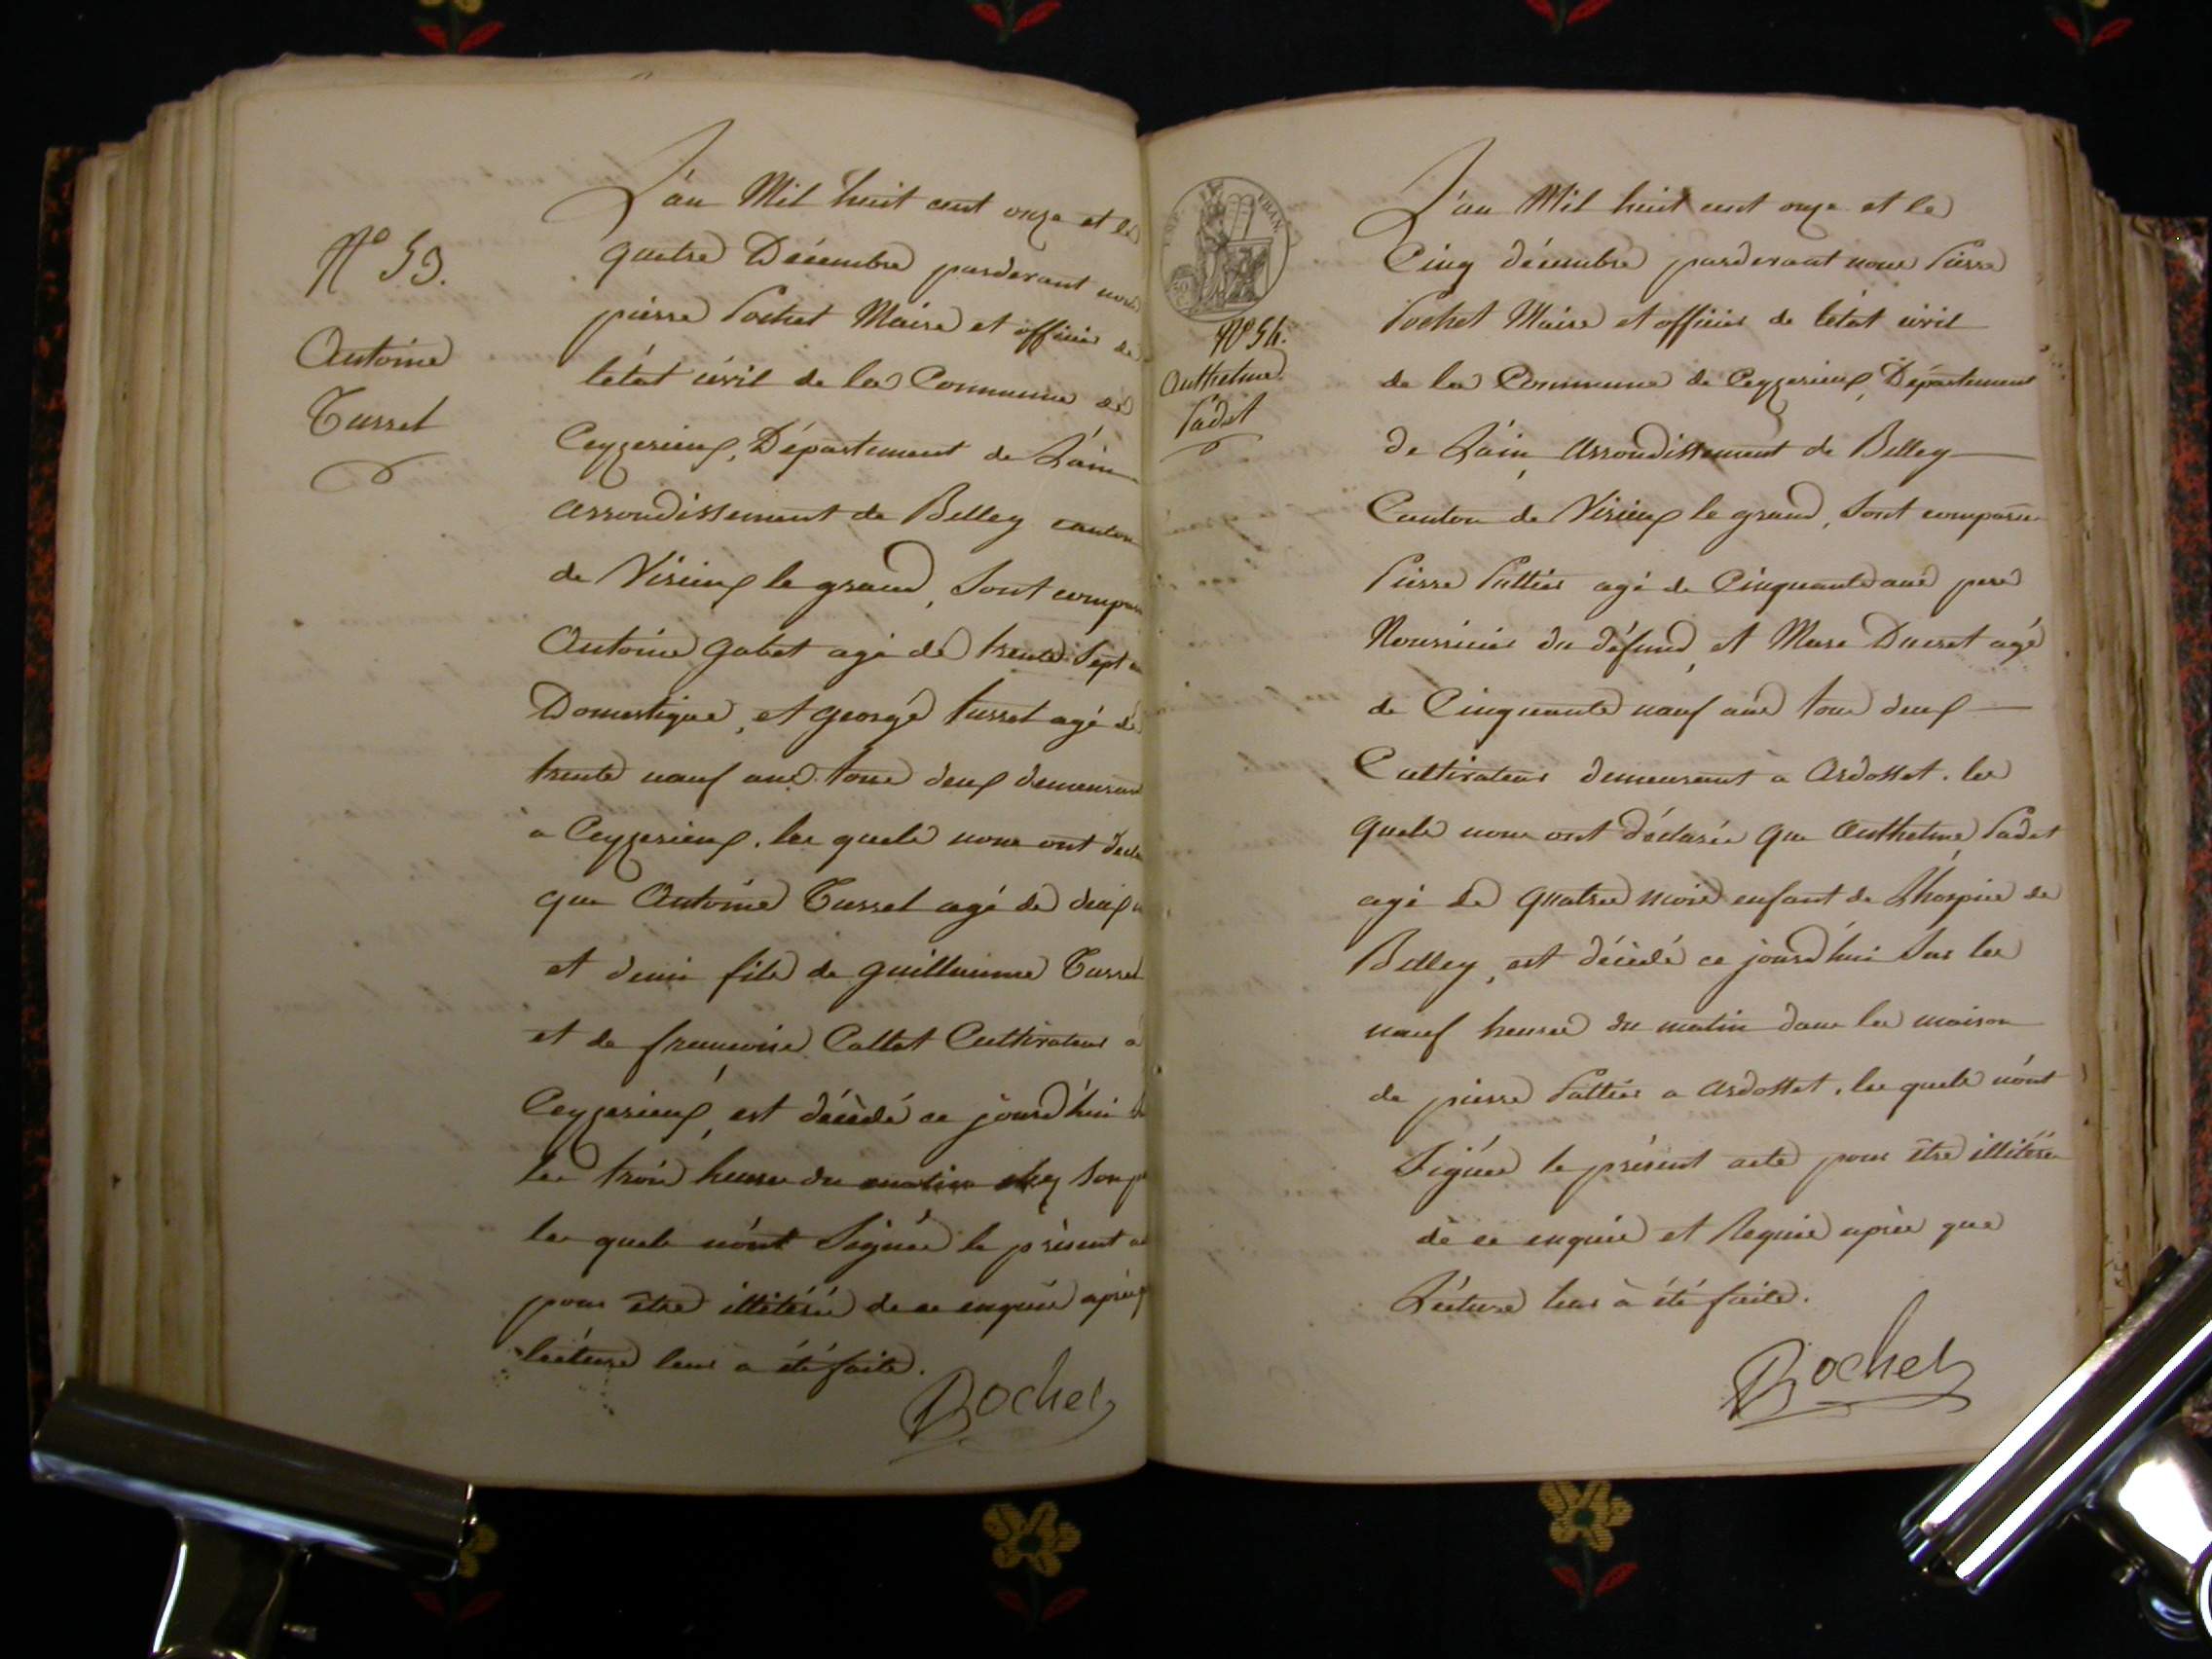 N° 53.
Antoine
Tusset
L'an Mil huit cent onze et le
quatre Décembre pardevant nous
pierre Pochet Maire et officier de
l'état civil de la Commune de
Ceyzerieux, Département de L'ain
arrondissement de Belley canton
de Virieux le grand, Sont compar
Antoine gabet agé de trente Sept
Domestique, et george tusset agé de
trente neuf ans tous deux demeurant
a Ceyzerieux. les quels nous ont décla
que Antoine Tusset agé de deux
et demi fils de guillaume Tusset
et de francoise Collet Cultivateur a
Ceyzerieux, est décédé ce jourd'hui
les trois heures du matin chez Son
les quels n'ont Signés le présent
pour être illitérés de ce enquis après
lécture leur a été faite.
Pochet
EMP. FRAN.
N° 54.
Anthelme
Padet
L'an Mil huit cent onze et le
Cinq décembre pardevant nous Pierre
Pochet Maire et officier de l'état civil
de la Commune de Ceyzerieux, Département
de L'ain, Arrondissement de Belley
Canton de Virieux le grand, Sont comparus
Pierre Pattier agé de Cinquante ans pere
Nourricier du défund, et Marc Ducret agé
de Cinquante neuf ans tous deux
Cultivateur demeurant a Ardosset. les
quels nous ont déclarés que Anthelme Padet
agé de quatres mois enfant de L'hospice de
Belley, est décédé ce jourd'hui Sur les
neuf heures du matin dans la maison
de pierre Pattier a Ardosset. les quels n'ont
Signés le présent acte pour être illitéré
dè ce enquis et Requis après que
Lécture leur à été faite.
Pochet